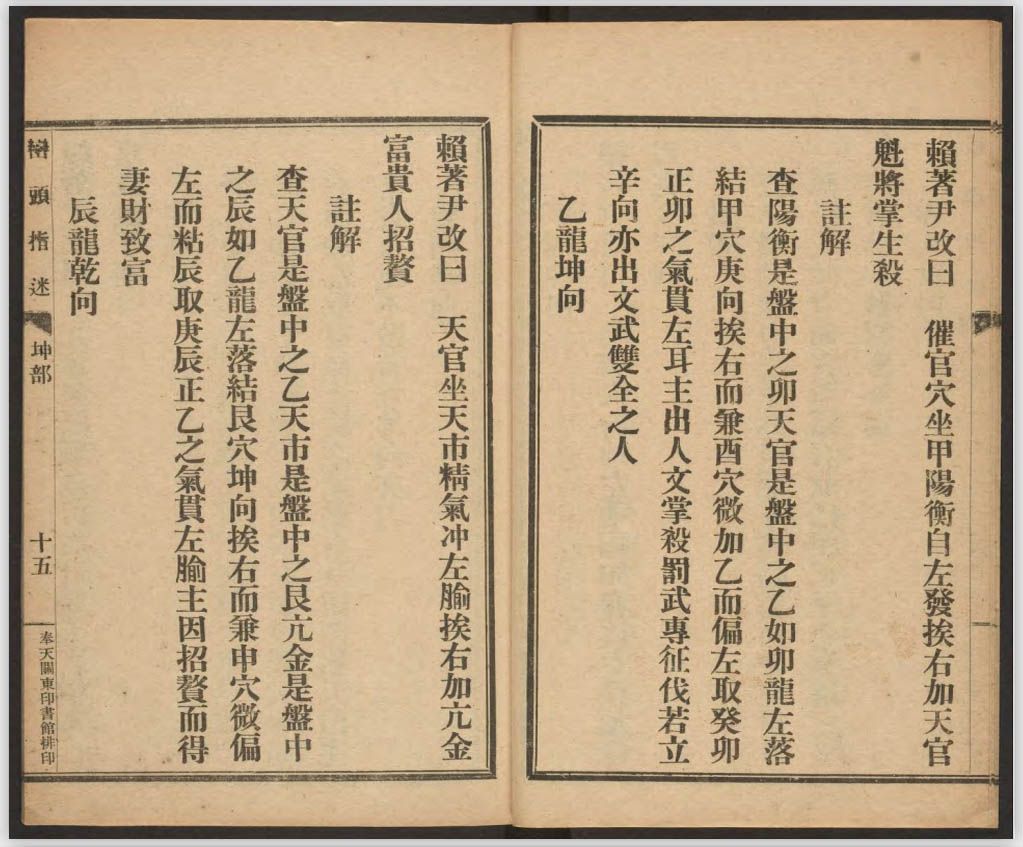 賴著尹改曰　催官穴坐甲陽衡自左發挨右加天官
魁將掌生殺
註解
查陽衡是盤中之卯天官是盤中之乙如卯龍左落
結甲穴庚向挨右而兼酉穴微加乙而偏左取癸卯
正卯之氣貫左耳主出人文掌殺罰武專征伐若立
辛向亦出文武雙全之人
乙龍坤向
賴著尹改曰　天官坐天市精氣冲左腧挨右加亢金
富貴人招贅
註解
查天官是盤中之乙天市是盤中之艮亢金是盤中
之辰如乙龍左落結艮穴坤向挨右而兼申穴微偏
左而粘辰取庚辰正乙之氣貫左腧主因招贅而得
妻財致富
辰龍乾向
巒頭指迷　坤部　十五　奉天關東印書館排印